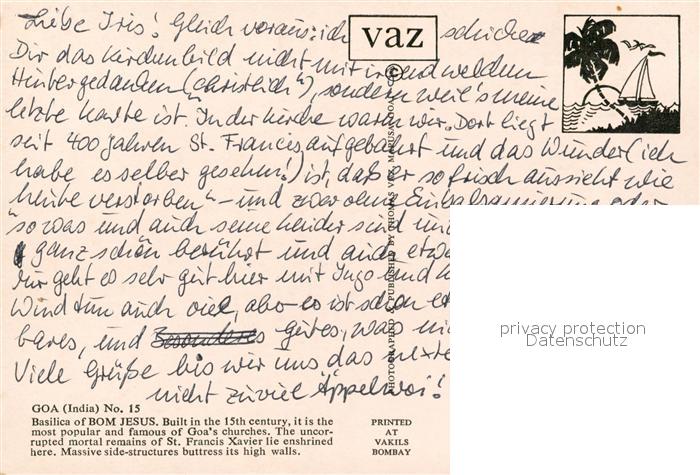 Liebe Iris! Gleich voraus: ich schicke
vaz
Dir das Kirchenbild nicht mit irgendwelchen
Hintergedanken ("christlich"), sondern weil's meine
letzte Karte ist. In der Kirche waren wir. Dort liegt
seit 400 Jahren St. Francis aufgebahrt und das Wunder (ich
habe es selber gesehen!) ist, daß er so frisch aussieht wie
"heute verstorben" – und zwar ohne Einbalsamierung oder
so was und auch seine Kleider sind
ganz schön berührt und auch
Mir geht es sehr gut hier mit Ingo und
Wind tun auch viel, aber es ist schon
bares, und Besonderes gutes, was
Viele Grüße bis wir uns das
nicht zuviel Äppelwoi!
PHOTOGRAPHED & PUBLISHED BY THOMAS VAZ, MAPUSA, GOA
privacy protection
Datenschutz
GOA (India) No. 15
Basilica of BOM JESUS. Built in the 15th century, it is the
most popular and famous of Goa's churches. The uncor-
rupted mortal remains of St. Francis Xavier lie enshrined
here. Massive side-structures buttress its high walls.
PRINTED
AT
VAKILS
BOMBAY